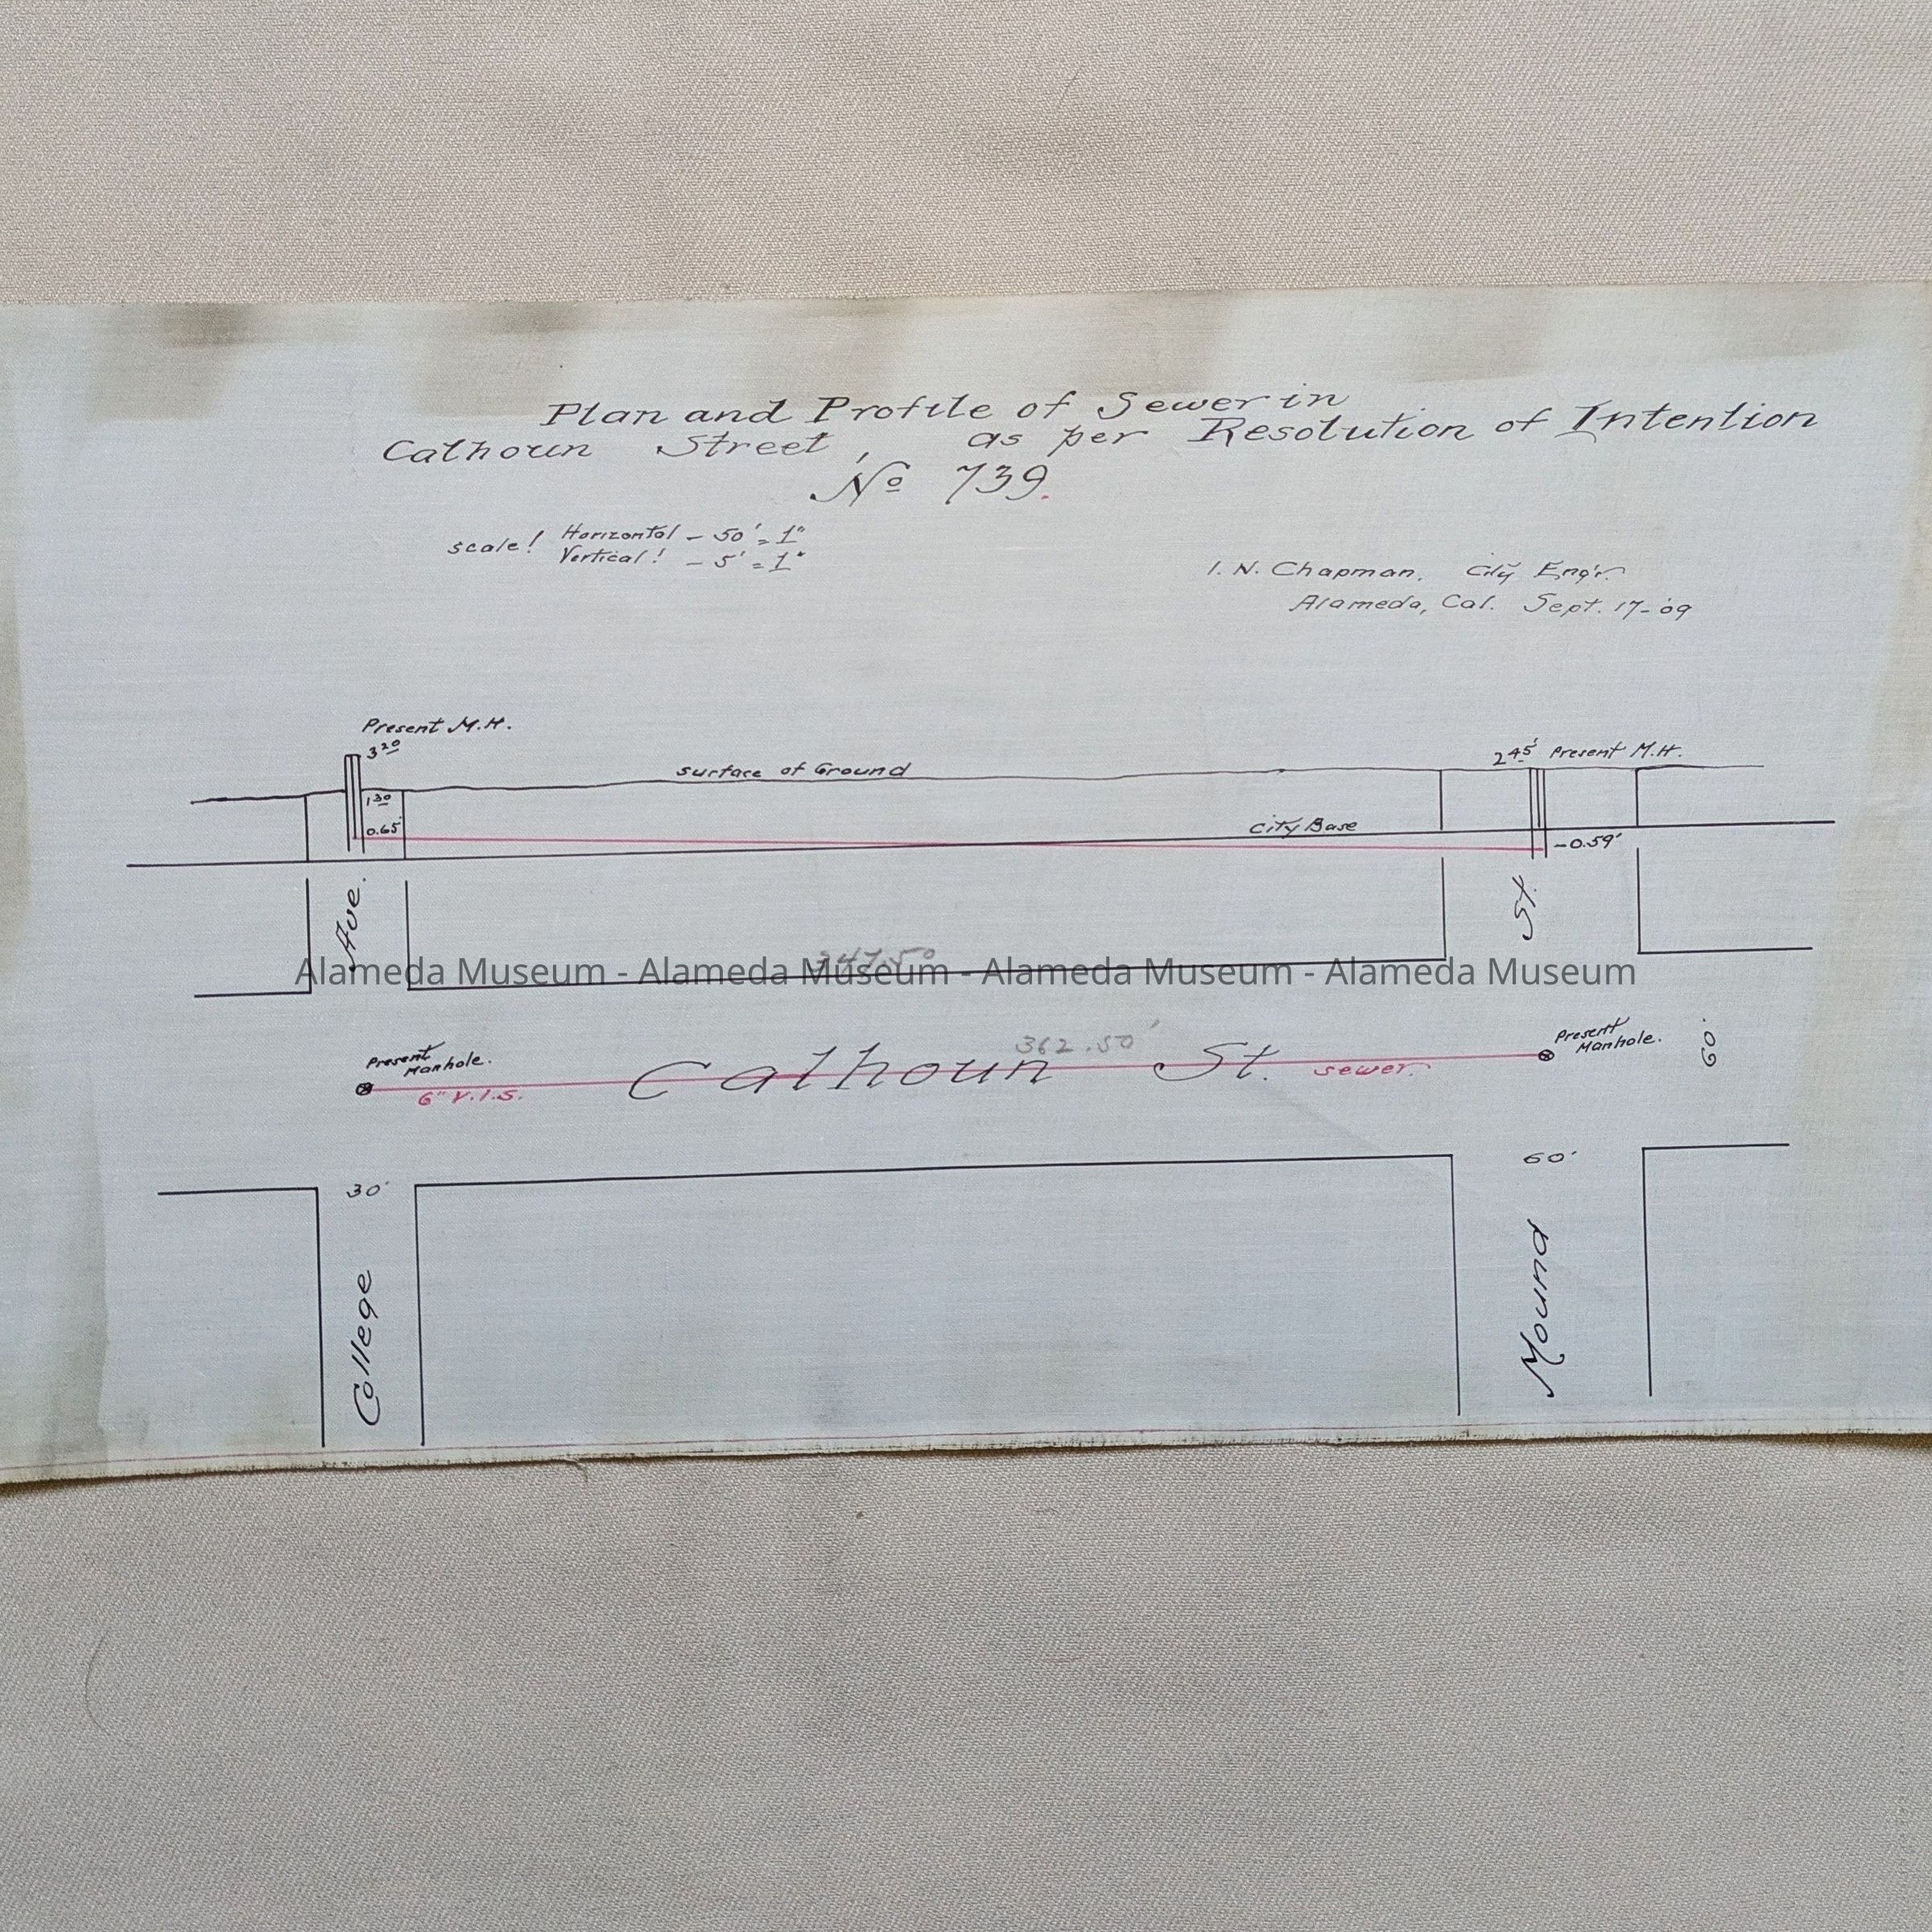 Plan and Profile of Sewer in
Calhoun Street, as per Resolution of Intention
No 739.
scale! Horizontal - 50' = 1"
Vertical! - 5' = 1"
I. N. Chapman, City Engr.
Alameda, Cal. Sept. 17-09
Present M.H.
3 20
surface of Ground
2 45' Present M.H.
1 30
0.65
City Base
-0.59'
Ave.
St.
Alameda Museum - Alameda Museum - Alameda Museum - Alameda Museum
362.50'
Present Manhole.
Calhoun St.
sewer.
Present Manhole.
60'
6" V.I.S.
30'
60'
College
Mound